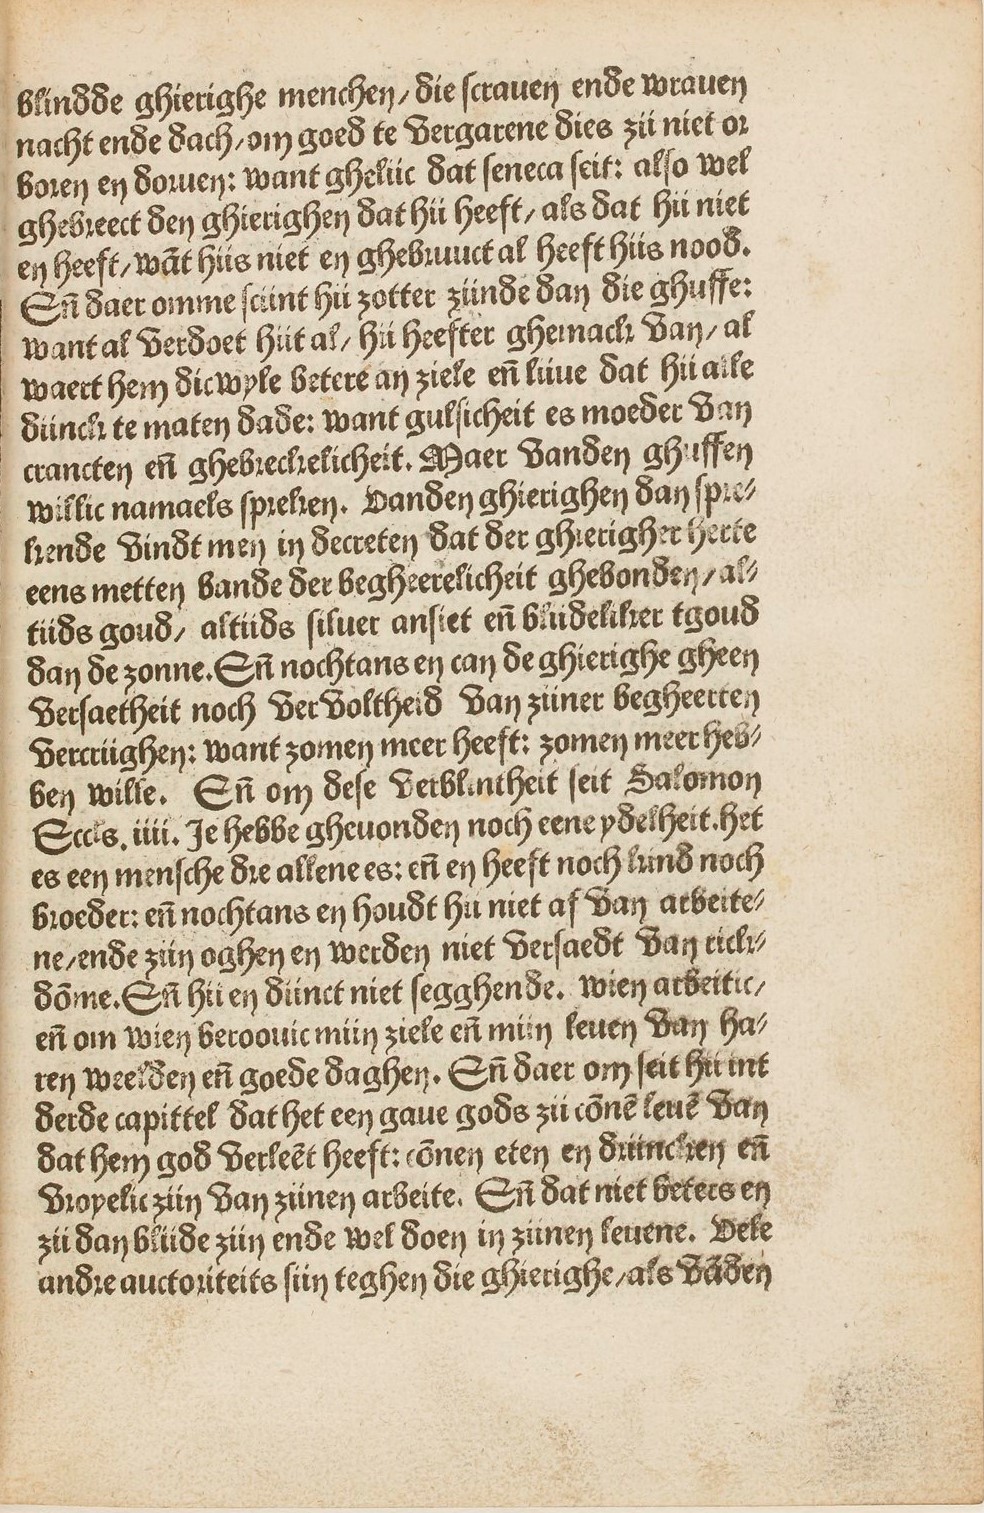 blindde ghierighe menchen/die scrauen ende wrauen
nacht ende dach/om goed te vergarene dies zii niet or
boren en doruen: want gheliic dat seneca seit: also wel
ghebreect den ghierighen dat hii heeft/als dat hii niet
en heeft/wāt hiis niet en ghebruuct al heeft hiis nood.
Eñ daer omme sciint hii zotter ziinde dan die ghuffe:
want al verdoet hiit al/ hii heefter ghemack van/al
waert hem dicwyle betere an ziele eñ liiue dat hii alle
diinck te maten dade: want gulsicheit es moeder van
crancten eñ ghebreckelicheit. Maer vanden ghuffen
willic namaels spreken. Vanden ghierighen dan spre-
kende vindt men in decreten dat der ghierigher herte
eens metten bande der begheerelicheit ghebonden/al-
tiids goud/ altiids siluer ansiet eñ bliideliker tgoud
dan de zonne. Eñ nochtans en can de ghierighe gheen
versaetheit noch vervoltheid van ziiner begheerten
vercriighen: want zomen meer heeft: zomen meer heb-
ben wille. Eñ om dese verblintheit seit Salomon
Eccls. iiii. Je hebbe gheuonden noch eene ydelheit.het
es een mensche die allene es: eñ en heeft noch kind noch
broeder: eñ nochtans en houdt hii niet af van arbeite-
ne/ende ziin oghen en werden niet versaedt van rick-
dōme. Eñ hii en diinct niet segghende. wien arbeitic/
eñ om wien beroouic miin ziele eñ miin leuen van ha-
ren weelden eñ goede daghen. Eñ daer om seit hii int
derde capittel dat het een gaue gods zii cōnē leuē van
dat hem god verleēt heeft: cōnen eten en driincken eñ
vroyelic ziin van ziinen arbeite. Eñ dat niet beters en
zii dan bliide ziin ende wel doen in ziinen leuene. Vele
andre auctoriteits siin teghen die ghierighe/als vādēn